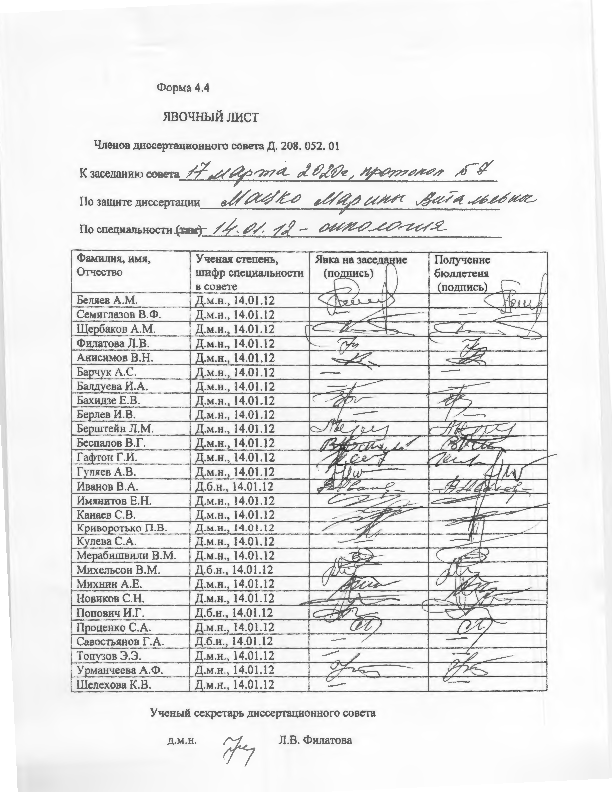 Форма 4.4
ЯВОЧНЫЙ ЛИСТ
Членов диссертационного совета Д. 208. 052. 01
К заседанию совета 17 марта 2020г, протокол № 7
По защите диссертации Марины Витальевны
По специальности (ям) 14.01.12 - онкология
Фамилия, имя, Отчество | Ученая степень, шифр специальности в совете | Явка на заседание (подпись) | Получение бюллетеня (подпись)
Беляев А.М. Д.м.н., 14.01.12
Семиглазов В.Ф. Д.м.н., 14.01.12 — —
Щербаков А.М. Д.м.н., 14.01.12
Филатова Л.В. Д.м.н., 14.01.12
Анисимов В.Н. Д.м.н., 14.01.12
Барчук А.С. Д.м.н., 14.01.12 — —
Балдуева И.А. Д.м.н., 14.01.12 — —
Бахидзе Е.В. Д.м.н., 14.01.12
Берлев И.В. Д.м.н., 14.01.12 — —
Берштейн Л.М. Д.м.н., 14.01.12
Беспалов В.Г. Д.м.н., 14.01.12
Гафтон Г.И. Д.м.н., 14.01.12
Гуляев А.В. Д.м.н., 14.01.12
Иванов В.А. Д.б.н., 14.01.12
Имянитов Е.Н. Д.м.н., 14.01.12
Канаев С.В. Д.м.н., 14.01.12
Криворотько П.В. Д.м.н., 14.01.12
Кулева С.А. Д.м.н., 14.01.12 — —
Мерабишвили В.М. Д.м.н., 14.01.12
Михельсон В.М. Д.б.н., 14.01.12
Михнин А.Е. Д.м.н., 14.01.12
Новиков С.Н. Д.м.н., 14.01.12
Попович И.Г. Д.б.н., 14.01.12
Проценко С.А. Д.м.н., 14.01.12
Савостьянов Г.А. Д.б.н., 14.01.12 — —
Топузов Э.Э. Д.м.н., 14.01.12 — —
Урманчеева А.Ф. Д.м.н., 14.01.12
Шелехова К.В. Д.м.н., 14.01.12 — —
Ученый секретарь диссертационного совета
д.м.н. Л.В. Филатова